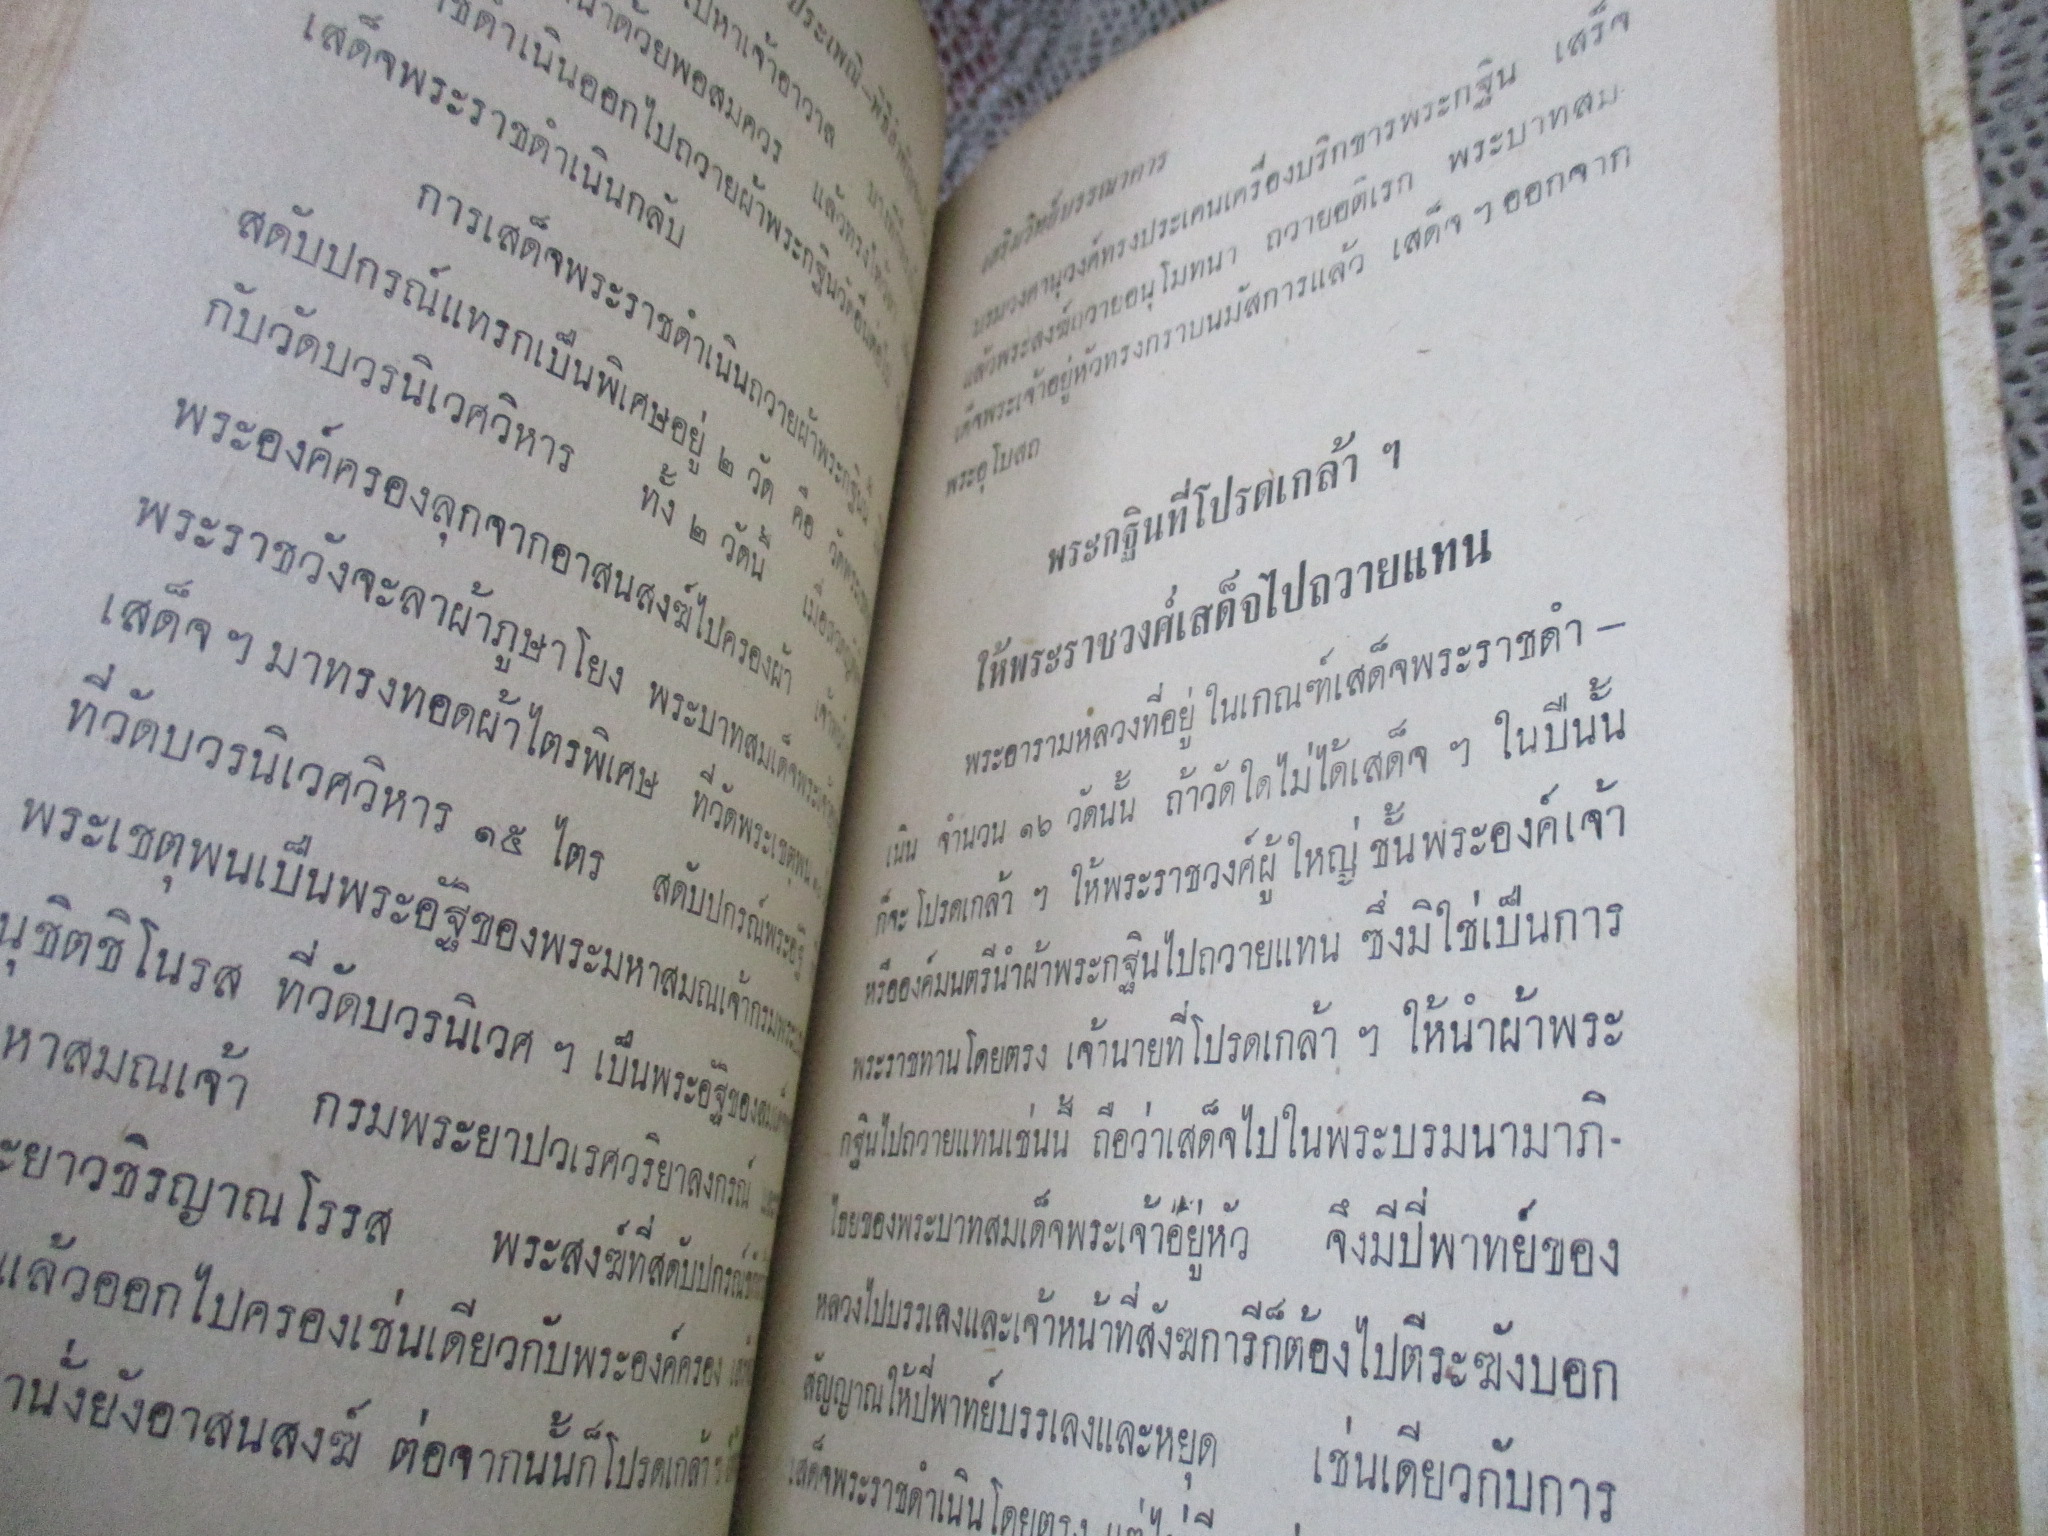 ประเพณี-พิธี
ไปหาเจ้าอาวาส
ด้วยพอสมควร แล้วทรง
ดำเนินออกไปถวายผ้าพระกฐินวัดอื่นต่อไป
เสด็จพระราชดำเนินกลับ
การเสด็จพระราชดำเนินถวายผ้าพระกฐินนี้
สดับปกรณ์แทรกเป็นพิเศษอยู่ ๒ วัด คือ
กับวัดบวรนิเวศวิหาร ทั้ง ๒ วัดนี้
พระองค์ครองลุกจากอาสนสงฆ์ไปครองผ้า
พระราชวังจะลาผ้าภูษาโยง พระบาทสมเด็จพระเจ้า
เสด็จ ๆ มาทรงทอดผ้าไตรพิเศษ ที่วัดพระเชตุพน
ที่วัดบวรนิเวศวิหาร ๑๕ ไตร สดับปกรณ์พระอัฐิ
พระเชตุพนเป็นพระอัฐิของพระมหาสมณเจ้ากรม
นุชิตชิโนรส ที่วัดบวรนิเวศ ๆ เป็นพระอัฐิของ
หาสมณเจ้า กรมพระยาปวเรศวริยาลงกรณ์
ะยาวชิรญาณโรรส พระสงฆ์ที่สดับปกรณ์
แล้วออกไปครองเช่นเดียวกับพระองค์ครอง
นั่งยังอาสนสงฆ์ ต่อจากนั้นก็โปรดเกล้า ๆ
เสริมวิทย์บรรณาคาร
บรมวงศานุวงศ์ทรงประเคนเครื่องบริกขารพระกฐิน เสร็จ
แล้วพระสงฆ์ถวายอนุโมทนา ถวายอดิเรก พระบาทสม-
เด็จพระเจ้าอยู่หัวทรงกราบนมัสการแล้ว เสด็จ ๆ ออกจาก
พระอุโบสถ
พระกฐินที่โปรดเกล้า ๆ
ให้พระราชวงศ์เสด็จไปถวายแทน
พระอารามหลวงที่อยู่ในเกณฑ์เสด็จพระราชดำ –
เนิน จำนวน ๑๖ วัดนั้น ถ้าวัดใดไม่ได้เสด็จ ๆ ในปีนั้น
ก็จะโปรดเกล้า ๆ ให้พระราชวงศ์ผู้ใหญ่ ชั้นพระองค์เจ้า
หรือองค์มนตรีนำผ้าพระกฐินไปถวายแทน ซึ่งมิใช่เป็นการ
พระราชทานโดยตรง เจ้านายที่โปรดเกล้า ๆ ให้นำผ้าพระ
กฐินไปถวายแทนเช่นนี้ ถือว่าเสด็จไปในพระบรมนามาภิ-
ไธยของพระบาทสมเด็จพระเจ้าอยู่หัว จึงมีปี่พาทย์ของ
หลวงไปบรรเลงและเจ้าหน้าที่สังฆการีก็ต้องไปตีระฆังบอก
สัญญาณให้ปี่พาทย์บรรเลงและหยุด เช่นเดียวกับการ
เสด็จพระราชดำเนินโดยตรง